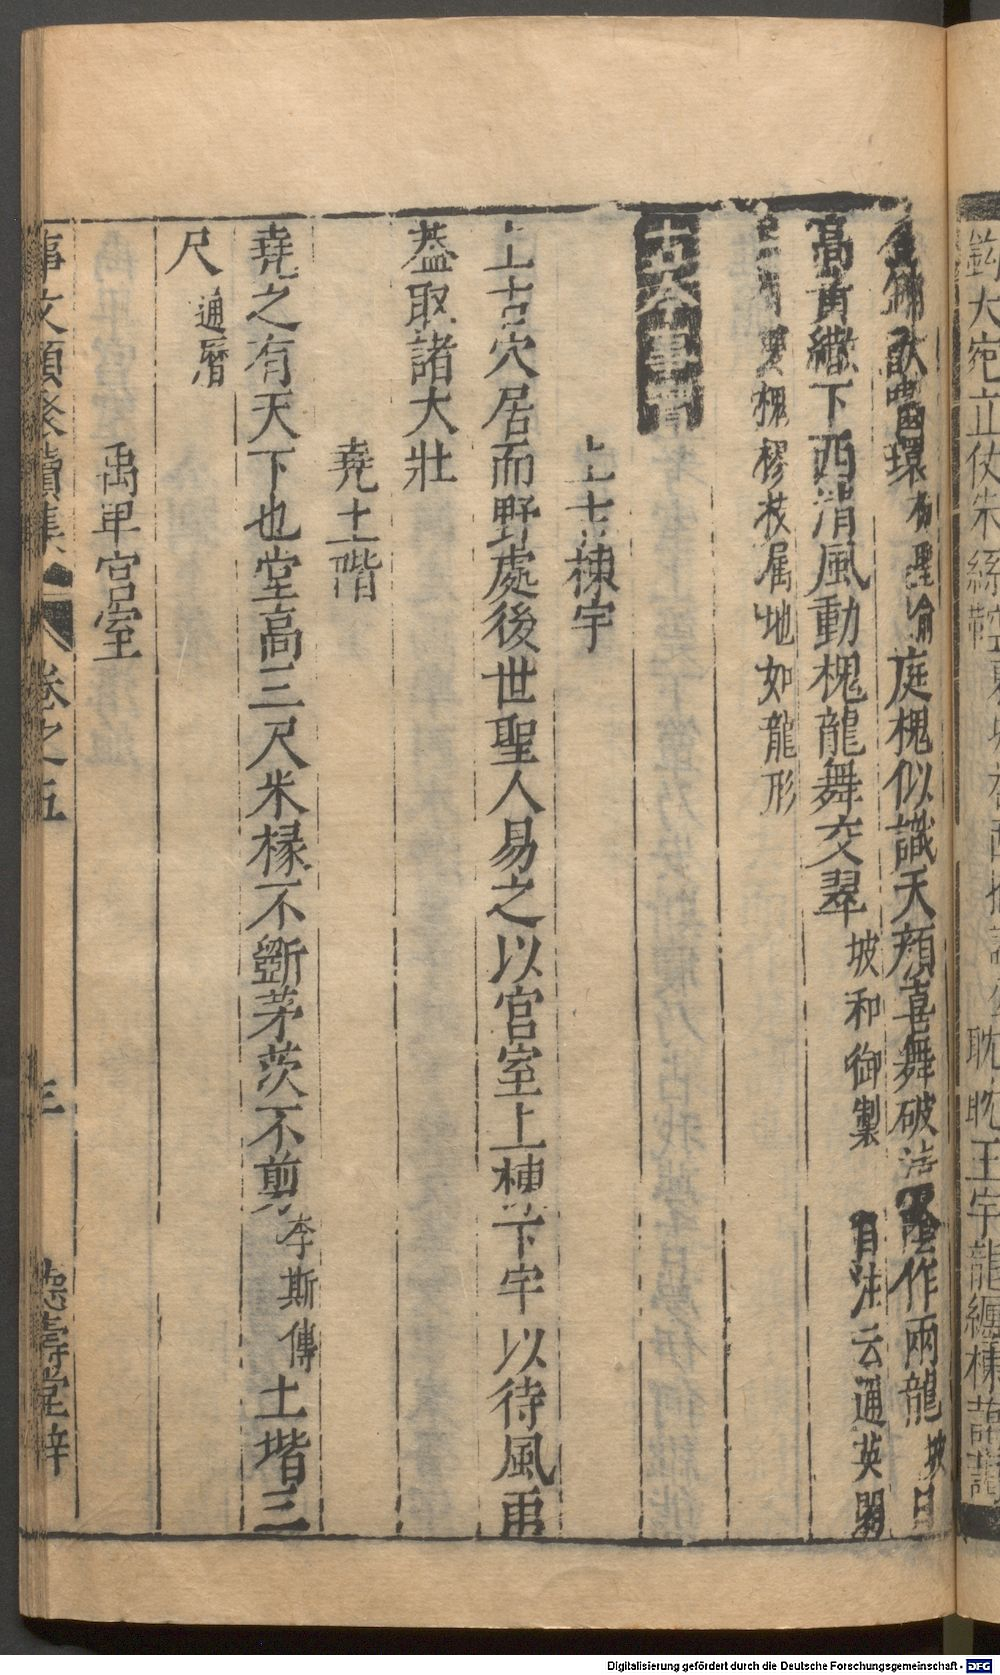 獸噛環 庭槐似識天顏喜舞破 陰作兩龍 坡
高黃繖下西清風動槐龍舞交翠 坡和御製 自注云通英閣
雙槐樛枝属地如龍形
古今事
上古棟宇
上古穴居而野處後世聖人易之以宮室上棟下宇以待風雨
蓋取諸大壯
堯土階
堯之有天下也堂高三尺采椽不斵茅茨不剪 李斯傳 土堦三
尺 通曆
禹卑宫室
事文類聚續集 卷之五 三 德壽堂梓
大宛立仗朱絲鞚 耽耽玉宇龍纏棟
Digitalisierung gefördert durch die Deutsche Forschungsgemeinschaft - DFG